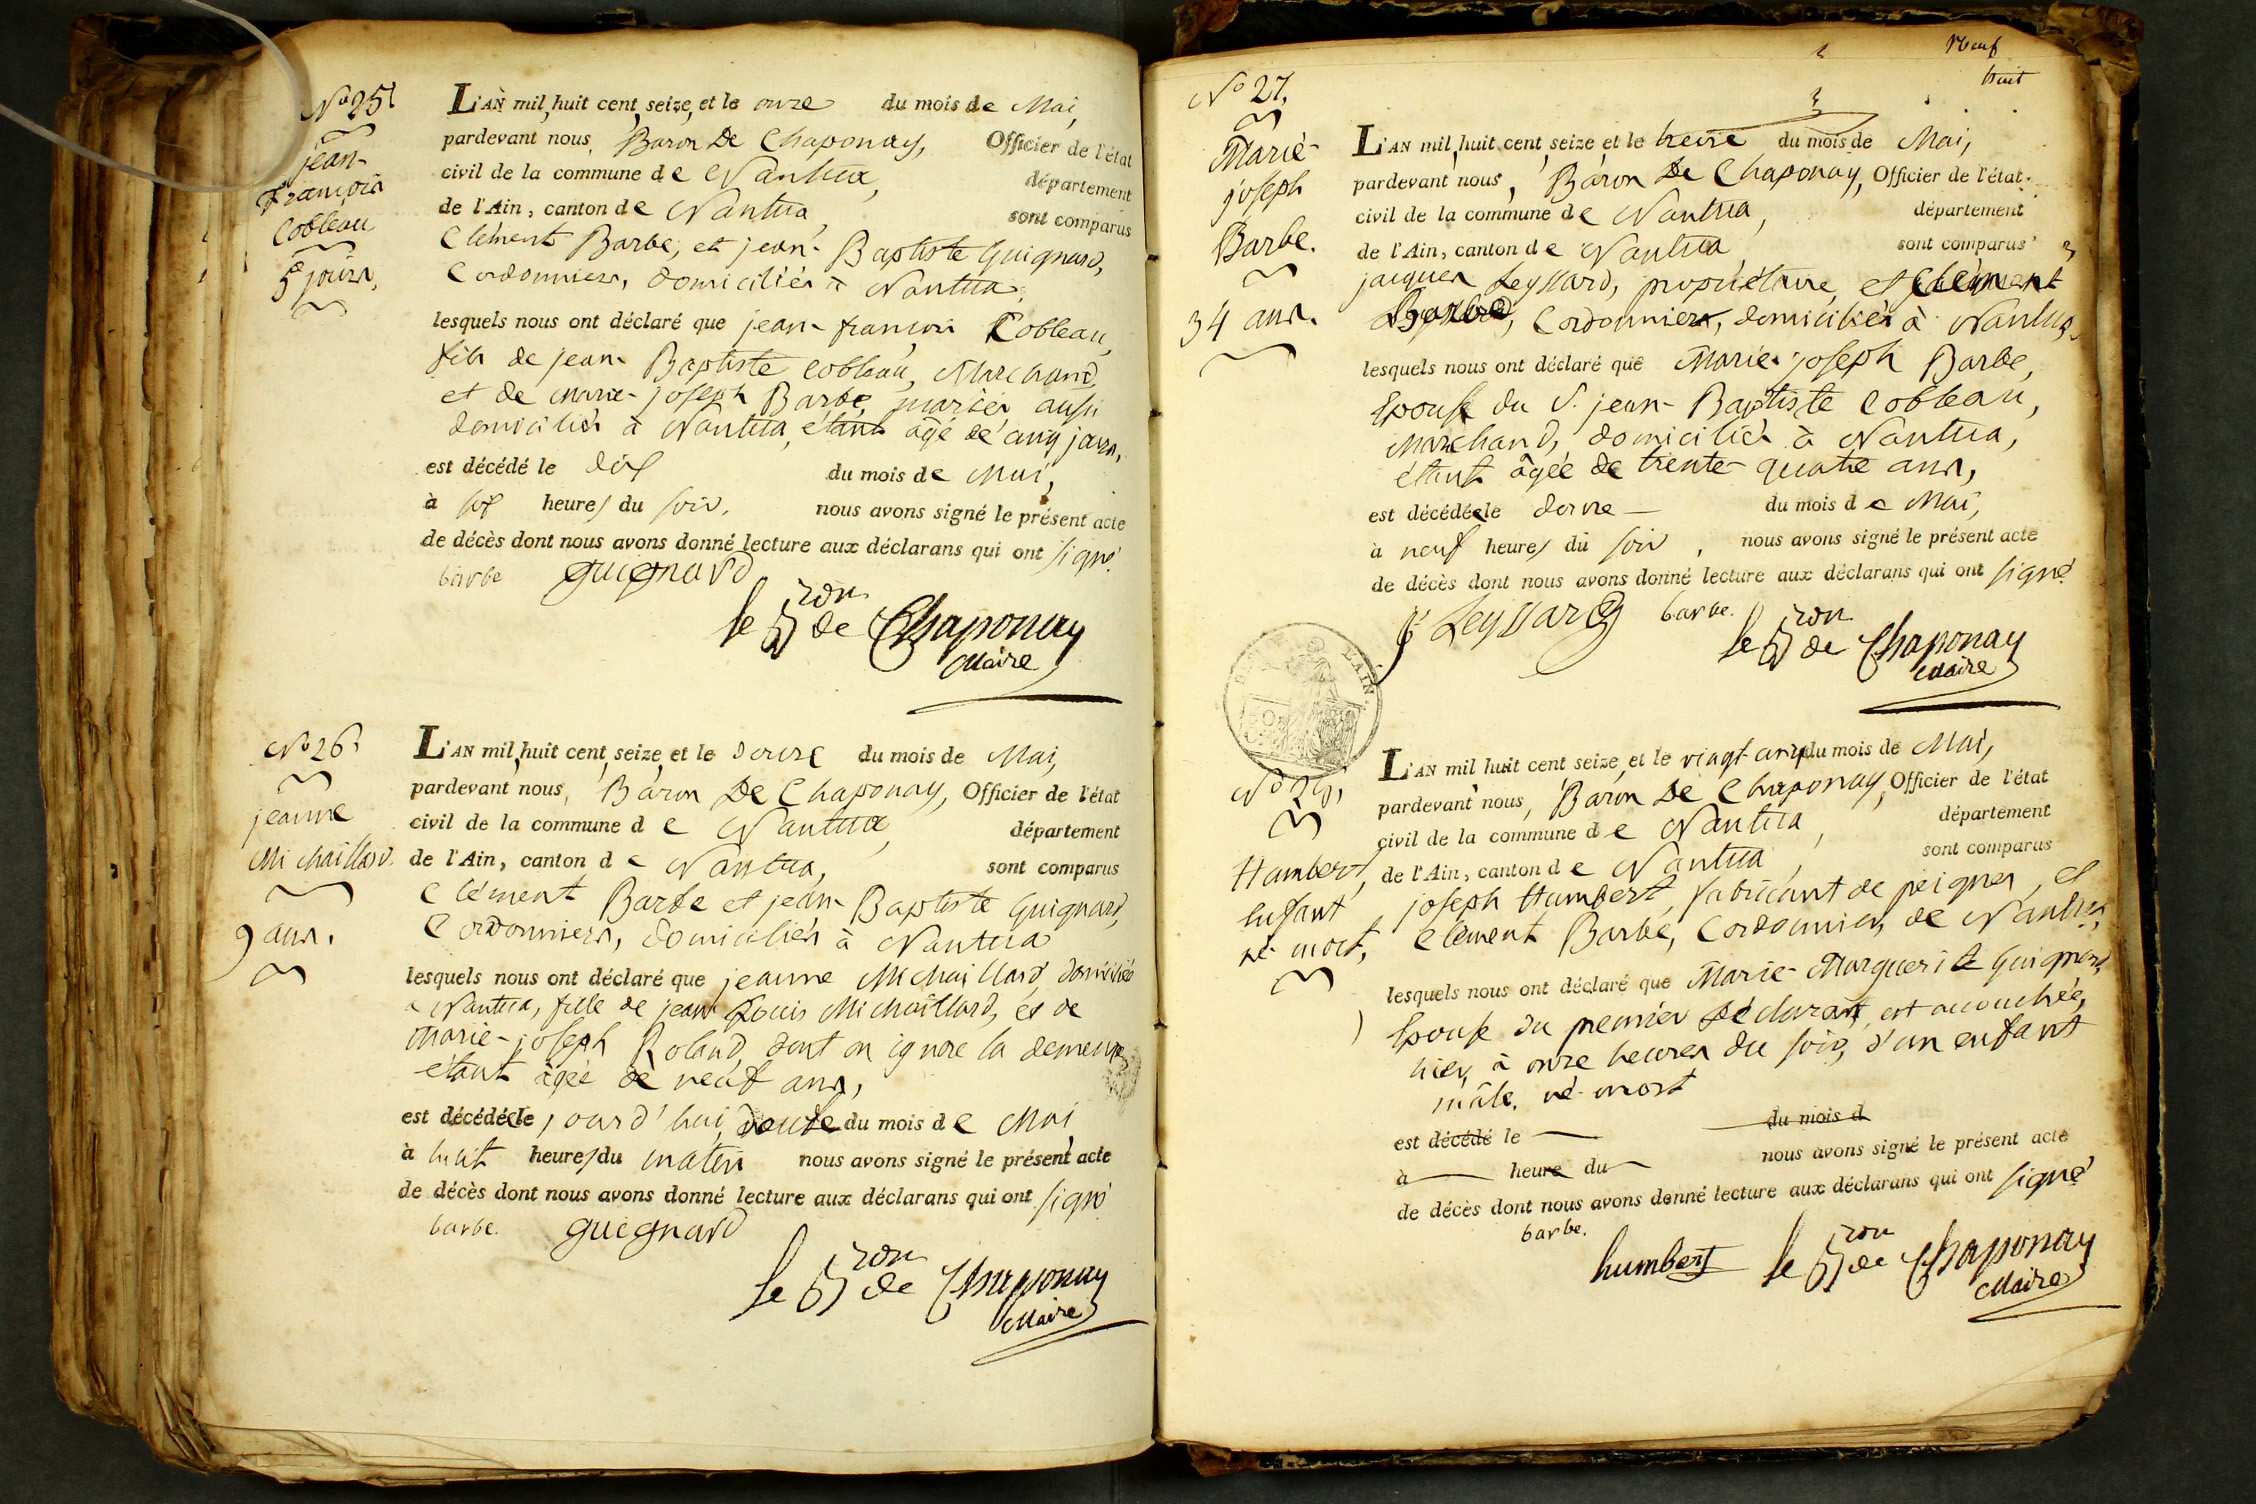 No 25
jean-
françois
Cobleau
5 jours.
L'AN mil huit cent seize, et le onze du mois de Mai,
pardevant nous, Baron De Chaponay, Officier de l'état
civil de la commune de Nantua, département
de l'Ain, canton de Nantua, sont comparus
Clément Barbe, et jean-Baptiste Guignard,
Cordonniers, domiciliés à Nantua,
lesquels nous ont déclaré que jean-françois Cobleau,
fils de jean-Baptiste Cobleau, Marchand,
et de marie-joseph Barbe, mariés aussi
domiciliés à Nantua, étant âgé de cinq jours,
est décédé le dix du mois de Mai,
à sept heures du soir, nous avons signé le présent acte
de décès dont nous avons donné lecture aux déclarans qui ont signé
barbe guignard
le Bron de Chaponay
Maire
No 26
jeanne
Michaillard.
9 ans.
L'AN mil huit cent seize, et le douze du mois de Mai,
pardevant nous, Baron De Chaponay, Officier de l'état
civil de la commune de Nantua, département
de l'Ain, canton de Nantua, sont comparus
Clément Barbe et jean-Baptiste Guignard,
Cordonniers, domiciliés à Nantua
lesquels nous ont déclaré que jeanne Michaillard, domiciliée
à Nantua, fille de jean Louis Michaillard, et de
Marie-joseph Roland, dont on ignore la demeure
étant âgée de neuf ans,
est décédée le jourd'hui, douze du mois de Mai
à huit heures du matin nous avons signé le présent acte
de décès dont nous avons donné lecture aux déclarans qui ont signé
barbe. guignard
le Bron de Chaponay
Maire
Neuf
huit
No 27.
Marie-
joseph
Barbe.
34 ans.
L'AN mil huit cent seize et le treize du mois de Mai,
pardevant nous, Baron De Chaponay, Officier de l'état
civil de la commune de Nantua, département
de l'Ain, canton de Nantua, sont comparus
jacques Leyssard, propriétaire, et Clément
Barbe, Cordonnier, domiciliés à Nantua,
lesquels nous ont déclaré que Marie-joseph Barbe,
Epouse du S. jean-Baptiste Cobleau,
Marchand, domiciliés à Nantua,
étant âgée de trente-quatre ans,
est décédée le douze du mois de Mai,
à neuf heures du soir, nous avons signé le présent acte
de décès dont nous avons donné lecture aux déclarans qui ont signé
Leyssard barbe.
le Bron de Chaponay
Maire
L'AIN
No 28.
Humbert,
enfant
né-mort.
L'AN mil huit cent seize, et le vingt cinq du mois de Mai,
pardevant nous, Baron De Chaponay, Officier de l'état
civil de la commune de Nantua, département
de l'Ain, canton de Nantua, sont comparus
joseph Humbert, fabricant de peignes, et
Clément Barbe, Cordonnier, de Nantua,
lesquels nous ont déclaré que Marie-Marguerite Guignard,
Epouse du premier Déclarant, est accouchée,
hier, à onze heures du soir, d'un enfant
mâle, né-mort
est décédé le du mois d
à heure du nous avons signé le présent acte
de décès dont nous avons donné lecture aux déclarans qui ont signé
barbe.
humbert le Bron de Chaponay
Maire